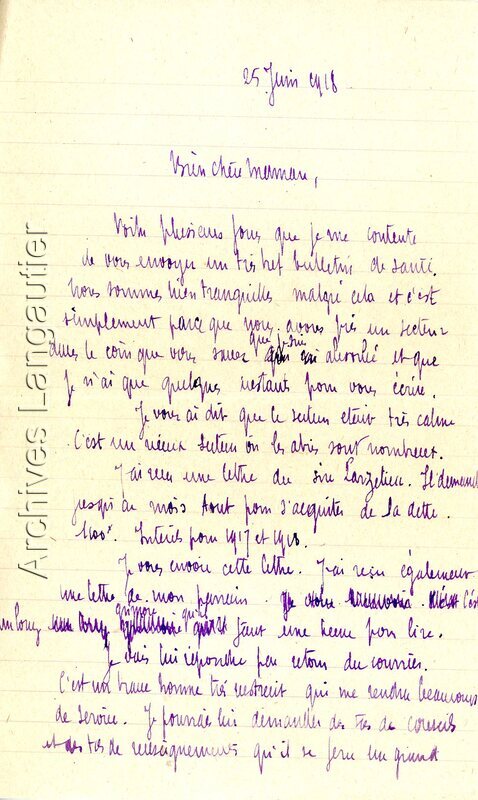 25 Juin 1918
Bien chère Maman,
Voilà plusieurs jours que je me contente
de vous envoyer un très bref bulletin de santé.
Nous sommes bien tranquilles malgré cela et c'est
simplement parce que nous avons pris un secteur
dans le coin que vous savez que je suis absorbé et que
je n'ai que quelques instants pour vous écrire.
Je vous ai dit que le secteur était très calme
C'est un vieux secteur où les abris sont nombreux.
J'ai reçu une lettre du sire Larzetiere. Il demande
jusqu'au mois d'Aout pour s'acquitter de la dette.
Intérêts pour 1917 et 1918.
Je vous envoie cette lettre. J'ai reçu également
une lettre de mon parrain. C'est
un long grimoire qu'il faut une heure pour lire.
Je vais lui répondre par retour du courrier.
C'est un brave homme très restreint qui me rendra beaucoup
de service. Je pourrai lui demander des tas de conseils
et des tas de renseignements qu'il se fera un grand
Archives Langautier